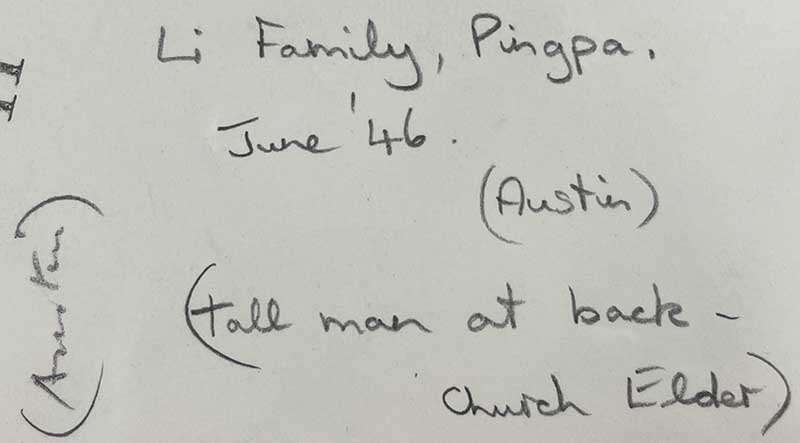 Li Family, Pingpa.
June '46.
(Austin)
(tall man at back -
church Elder)
(Austin)
11